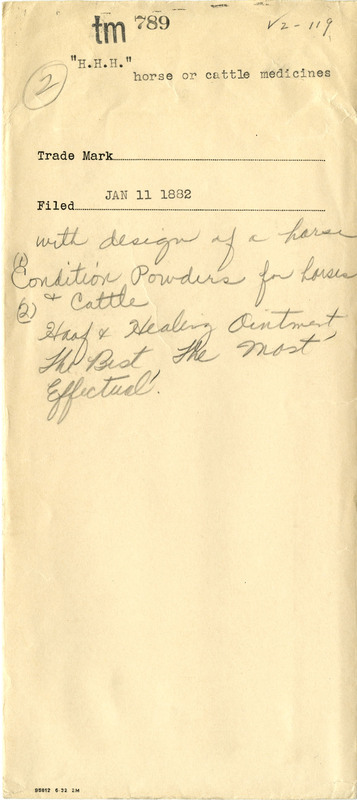 tm 789
V2-119
(2)
"H.H.H."
horse or cattle medicines
Trade Mark
JAN 11 1882
Filed
with design of a horse
(1)
Condition Powders for horses
(2) & Cattle
Hoof & Healing Ointment
The Best The Most
Effectual.
95612 6-22 2M